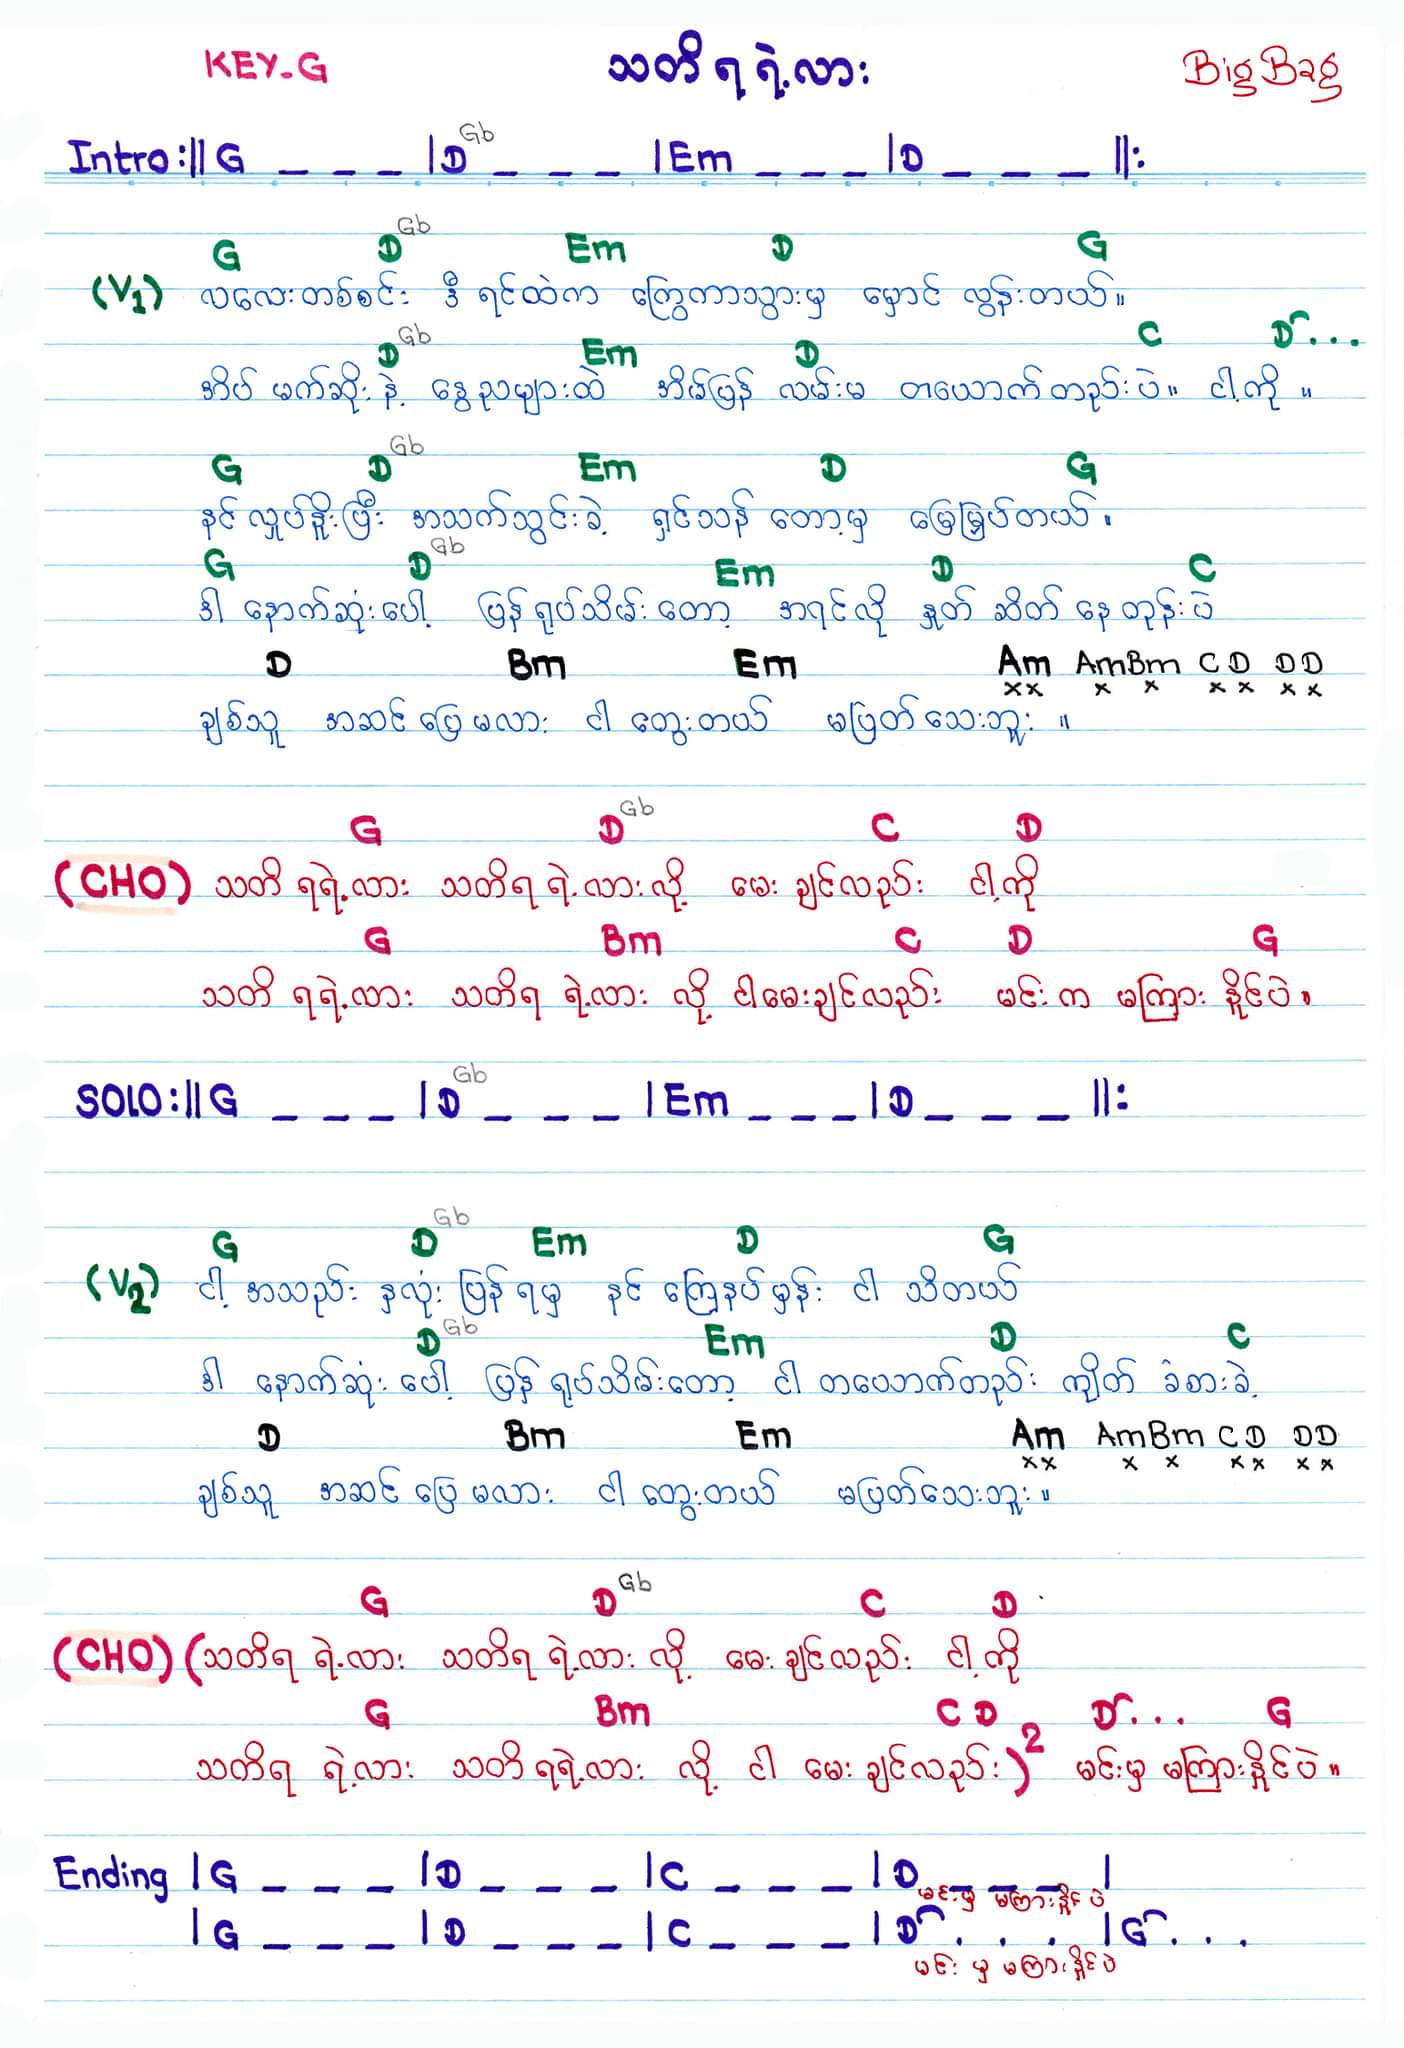 KEY-G သတိ ရ ရဲ့လား BigBag
Intro :|| G _ _ _ | D Gb _ _ _ | Em _ _ _ | D _ _ _ ||:
G D Gb Em D G
(V1) လလေးတစ်စင်း ဒီ ရင်ထဲက ကြွေကာသွားမှ မှောင် လွန်းတယ်။
D Gb Em D C D...
အိပ် မက်ဆိုး နဲ့ နွေညများထဲ အိမ်ပြန် လမ်းမ တယောက်တည်းပဲ။ ငါ့ကို ။
G D Gb Em D G
နင် လှုပ်နှိုးပြီး အသက်သွင်းခဲ့ ရှင်သန် တော့မှ မြေမြှုပ်တယ်။
G D Gb Em D C
ဒါ နောက်ဆုံးပေါ့ ပြန် ရုပ်သိမ်း တော့ အရင်လို နှုတ် ဆိတ် နေ တုန်းပဲ
D Bm Em Am AmBm C D D D
xx x x x x x x
ချစ်သူ အဆင် ပြေ မလား ငါ တွေးတယ် မပြတ်သေးဘူး ။
G D Gb C D
(CHO) သတိ ရရဲ့လား သတိရ ရဲ့လားလို့ မေး ချင်လည်း ငါ့ကို
G Bm C D G
သတိ ရရဲ့လား သတိရ ရဲ့လား လို့ ငါမေးချင်လည်း မင်းက မကြား နိုင်ပဲ။
SOLO :|| G _ _ _ | D Gb _ _ _ | Em _ _ _ | D _ _ _ ||:
G D Gb Em D G
(V2) ငါ့ အသည်း နှလုံး ပြန် ရမှ နင် ကြေနပ်မှန်း ငါ သိတယ်
D Gb Em D C
ဒါ နောက်ဆုံး ပေါ့ ပြန် ရုပ်သိမ်းတော့ ငါ တယောက်တည်း ကျိတ် ခံစားခဲ့
D Bm Em Am AmBm C D D D
xx x x x x x x
ချစ်သူ အဆင် ပြေ မလား ငါ တွေးတယ် မပြတ်သေးဘူး ။
G D Gb C D
(CHO) (သတိရ ရဲ့လား သတိရ ရဲ့လား လို့ မေး ချင်လည်း ငါ့ကို
G Bm C D D... G
သတိရ ရဲ့လား သတိ ရရဲ့လား လို့ ငါ မေး ချင်လည်း )2 မင်းမှ မကြားနိုင်ပဲ ။
Ending | G _ _ _ | D _ _ _ | C _ _ _ | D _ _ _ |
မင်းမှ မကြားနိုင်ပဲ
| G _ _ _ | D _ _ _ | C _ _ _ | D . . . | G . . .
မင်း မှ မကြားနိုင်ပဲ